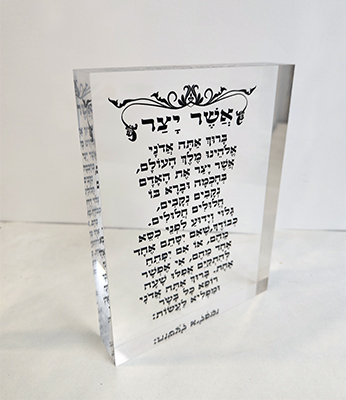 אֲשֶׁר יָצַר
בָּרוּךְ אַתָּה אֲדֹנָי
אֱלֹהֵינוּ מֶלֶךְ הָעוֹלָם,
אֲשֶׁר יָצַר אֶת הָאָדָם
בְּחָכְמָה וּבָרָא בוֹ
נְקָבִים נְקָבִים,
חֲלוּלִים חֲלוּלִים.
גָּלוּי וְיָדוּעַ לִפְנֵי כִסֵּא
כְבוֹדֶךָ,שֶׁאִם יִסָּתֵם אֶחָד
מֵהֶם, אוֹ אִם יִפָּתֵחַ
אֶחָד מֵהֶם, אִי אֶפְשַׁר
לְהִתְקַיֵּם אֲפִלּוּ שָׁעָה
אֶחָת. בָּרוּךְ אַתָּה אֲדֹנָי
רוֹפֵא כָל בָּשָׂר
וּמַפְלִיא לַעֲשׂוֹת: